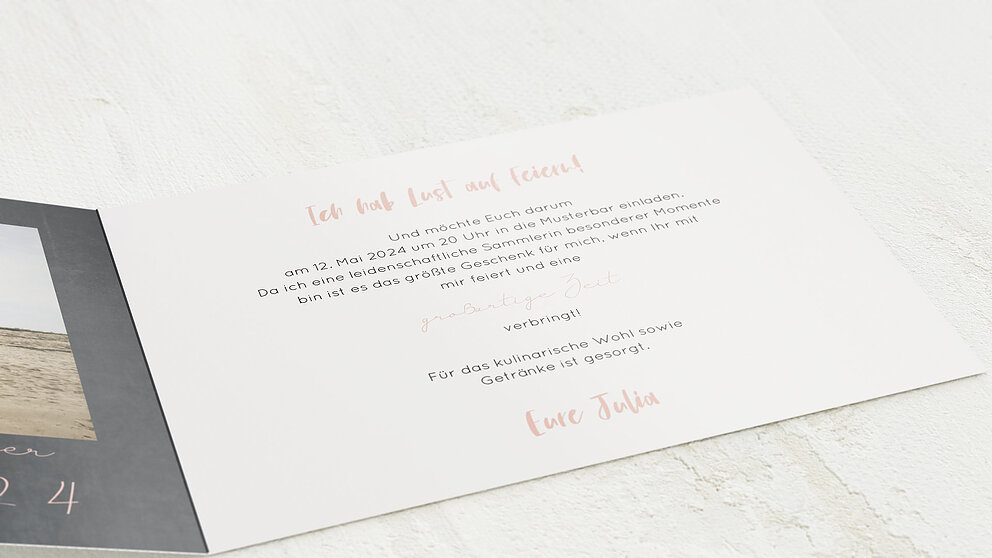 Ich hab Lust auf Feiern!
Und möchte Euch darum
am 12. Mai 2024 um 20 Uhr in die Musterbar einladen.
Da ich eine leidenschaftliche Sammlerin besonderer Momente
bin ist es das größte Geschenk für mich, wenn Ihr mit
mir feiert und eine
großartige Zeit
verbringt!
Für das kulinarische Wohl sowie
Getränke ist gesorgt.
Eure Julia
2 4